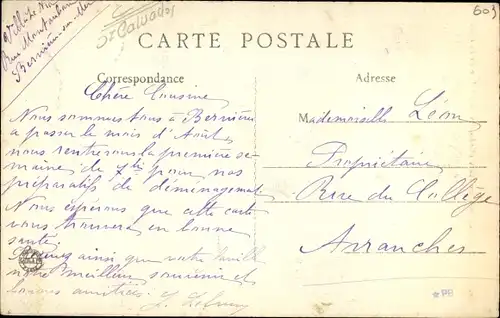 Rue Montauban
Bernières-sur-Mer
Calvados
603
CARTE POSTALE
Correspondance
Adresse
Chère Cousine
Nous sommes tous à Bernières
à passer le mois d'Août,
nous rentrerons la première se-
maine de 7bre pour nos
préparatifs de déménagement
Nous espérons que cette carte
vous trouvera en bonne
santé.
ainsi que votre famille
nos meilleurs souvenirs et
bonnes amitiés.
Mademoiselle Léon
Propriétaire
Rue du Collège
Avranches
PB